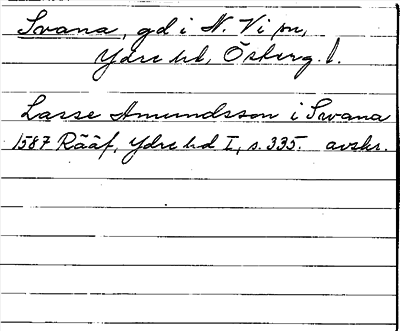 Svana, gd i N. Vi sn,
Ydre hd, Österg. l.
Lasse Amundsson i Svana
1587 Rääf, Ydre hd I, s. 335. avskr.